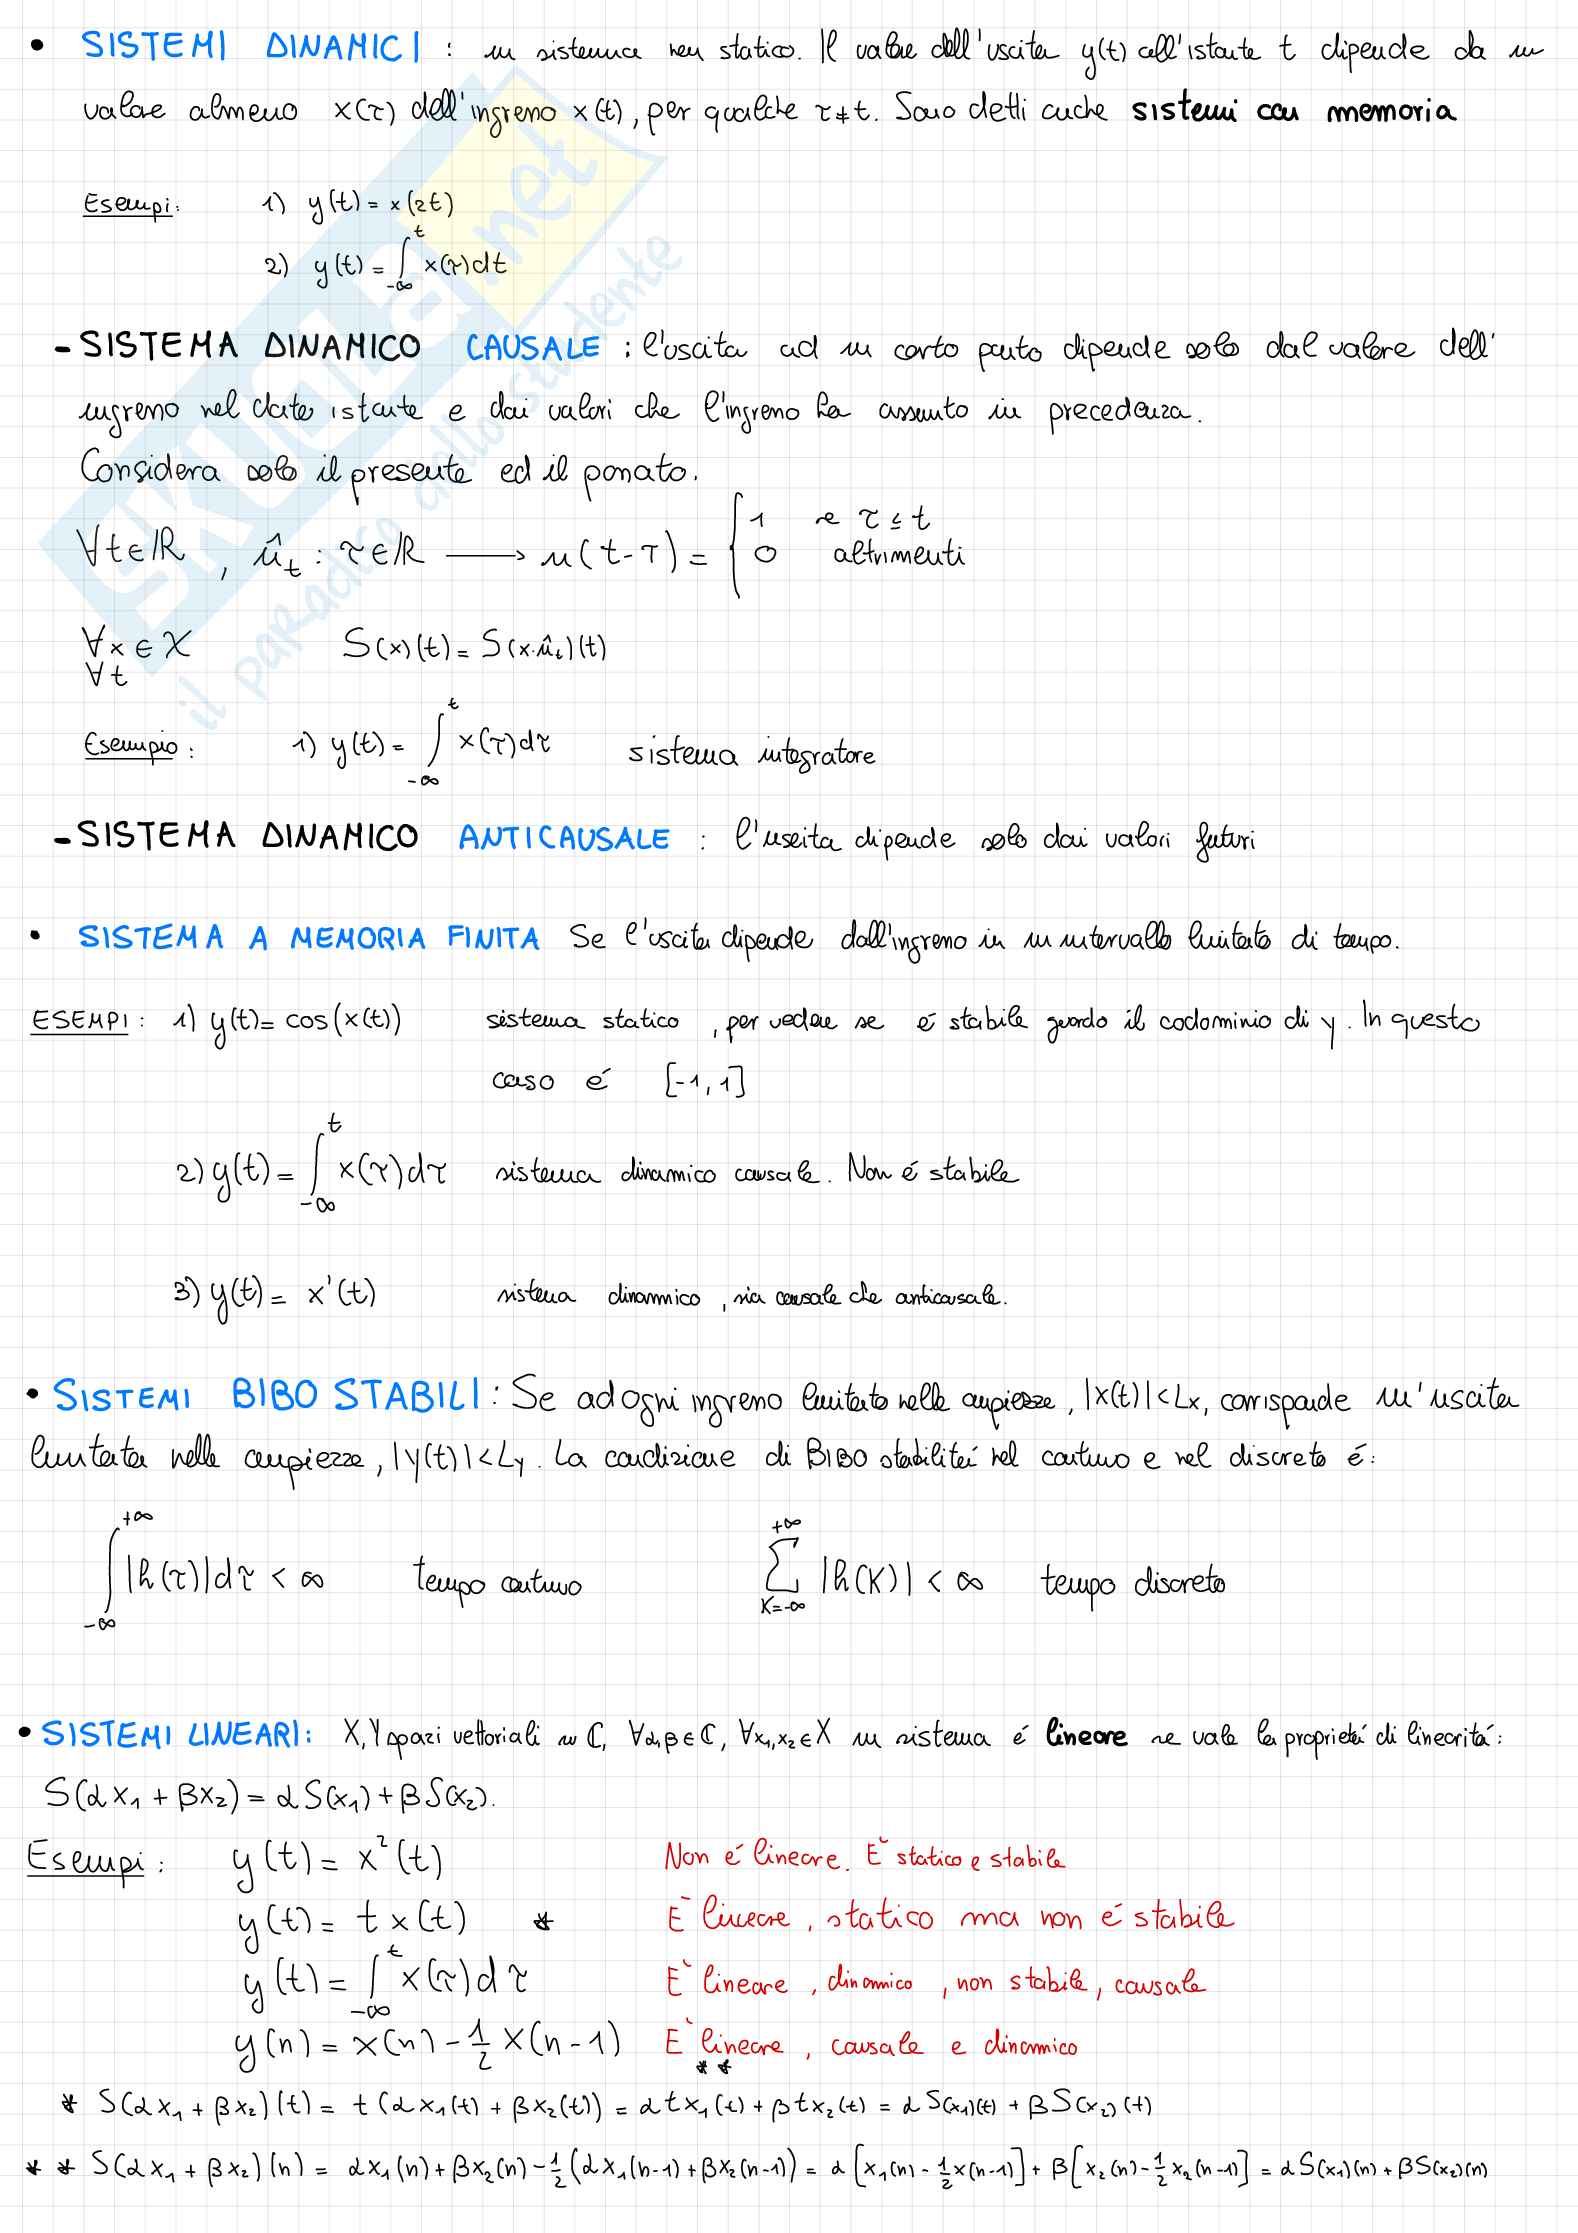 • SISTEMI DINAMICI : un sistema non statico. Il valore dell'uscita y(t) all'istante t dipende da un
valore almeno x(τ) dell'ingresso x(t), per qualche τ≠t. Sono detti anche sistemi con memoria
Esempi: 1) y(t) = x(2t)
2) y(t) = ∫_{-∞}^{t} x(τ)dt
- SISTEMA DINAMICO CAUSALE : l'uscita ad un certo punto dipende solo dal valore dell'
ingresso nel dato istante e dai valori che l'ingresso ha assunto in precedenza.
Considera solo il presente ed il passato.
∀t∈ℝ , û_t : τ∈ℝ ⟶ u(t-τ) = { 1 se τ ≤ t
0 altrimenti
∀x ∈ X S(x)(t) = S(x·û_t)(t)
∀t
Esempio : 1) y(t) = ∫_{-∞}^{t} x(τ)dτ sistema integratore
- SISTEMA DINAMICO ANTICAUSALE : l'uscita dipende solo dai valori futuri
• SISTEMA A MEMORIA FINITA Se l'uscita dipende dall'ingresso in un intervallo limitato di tempo.
ESEMPI : 1) y(t) = cos(x(t)) sistema statico , per vedere se é stabile guardo il codominio di y. In questo
caso é [-1, 1]
2) y(t) = ∫_{-∞}^{t} x(τ)dτ sistema dinamico causale. Non é stabile
3) y(t) = x'(t) sistema dinamico , sia causale che anticausale.
• SISTEMI BIBO STABILI : Se ad ogni ingresso limitato nelle ampiezze, |x(t)| < Lx, corrisponde un'uscita
limitata nelle ampiezze, |y(t)| < Ly. La condizione di BIBO stabilitá nel continuo e nel discreto é :
∫_{-∞}^{+∞} |h(τ)|dτ < ∞ tempo continuo ∑_{K=-∞}^{+∞} |h(K)| < ∞ tempo discreto
• SISTEMI LINEARI : X, Y spazi vettoriali su ℂ, ∀α,β∈ℂ, ∀x₁,x₂∈X un sistema é lineare se vale la proprietá di linearitá :
S(αx₁ + βx₂) = αS(x₁) + βS(x₂).
Esempi : y(t) = x²(t) Non é lineare. È statico e stabile
y(t) = t x(t) * È lineare , statico ma non é stabile
y(t) = ∫_{-∞}^{t} x(τ)dτ È lineare , dinamico , non stabile, causale
y(n) = x(n) - 1/2 x(n-1) È lineare , causale e dinamico
* *
* S(αx₁ + βx₂)(t) = t(αx₁(t) + βx₂(t)) = αtx₁(t) + βtx₂(t) = αS(x₁)(t) + βS(x₂)(t)
* * S(αx₁ + βx₂)(n) = αx₁(n) + βx₂(n) - 1/2(αx₁(n-1) + βx₂(n-1)) = α[x₁(n) - 1/2x(n-1)] + β[x₂(n) - 1/2x₂(n-1)] = αS(x₁)(n) + βS(x₂)(n)
SKUOLA.net
il paradiso dello studente